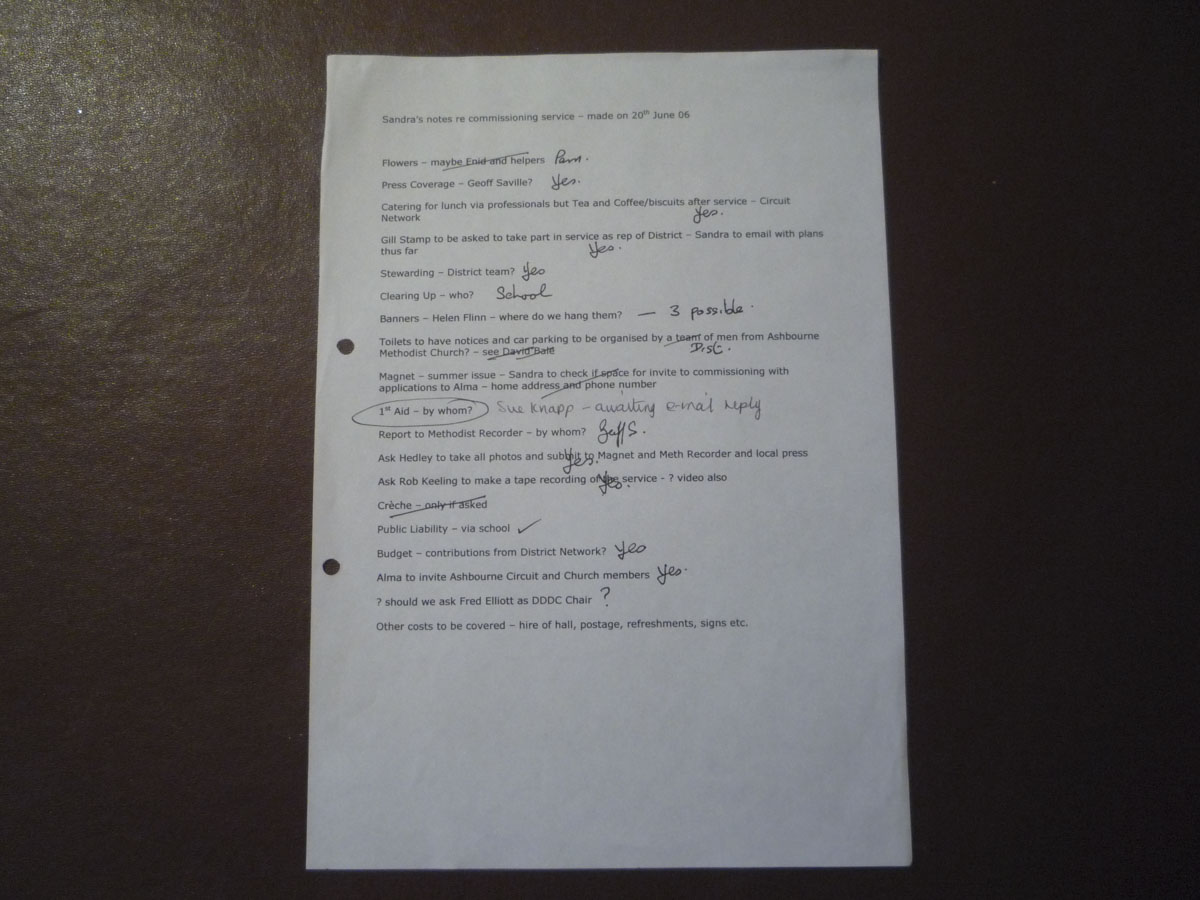 Sandra's notes re commissioning service – made on 20th June 06
Flowers – maybe Enid and helpers Pam.
Press Coverage – Geoff Saville? Yes.
Catering for lunch via professionals but Tea and Coffee/biscuits after service – Circuit
Network Yes.
Gill Stamp to be asked to take part in service as rep of District – Sandra to email with plans
thus far Yes.
Stewarding – District team? Yes
Clearing Up – who? School
Banners – Helen Flinn – where do we hang them? — 3 possible.
Toilets to have notices and car parking to be organised by a team of men from Ashbourne
Methodist Church? – see David Bale Dist.
Magnet – summer issue – Sandra to check if space for invite to commissioning with
applications to Alma – home address and phone number
1st Aid – by whom? Sue Knapp – awaiting e-mail reply
Report to Methodist Recorder – by whom? Geoff S.
Ask Hedley to take all photos and submit to Magnet and Meth Recorder and local press
Yes.
Ask Rob Keeling to make a tape recording of the service - ? video also
Yes.
Crèche – only if asked
Public Liability – via school ✓
Budget – contributions from District Network? Yes
Alma to invite Ashbourne Circuit and Church members Yes.
? should we ask Fred Elliott as DDDC Chair ?
Other costs to be covered – hire of hall, postage, refreshments, signs etc.